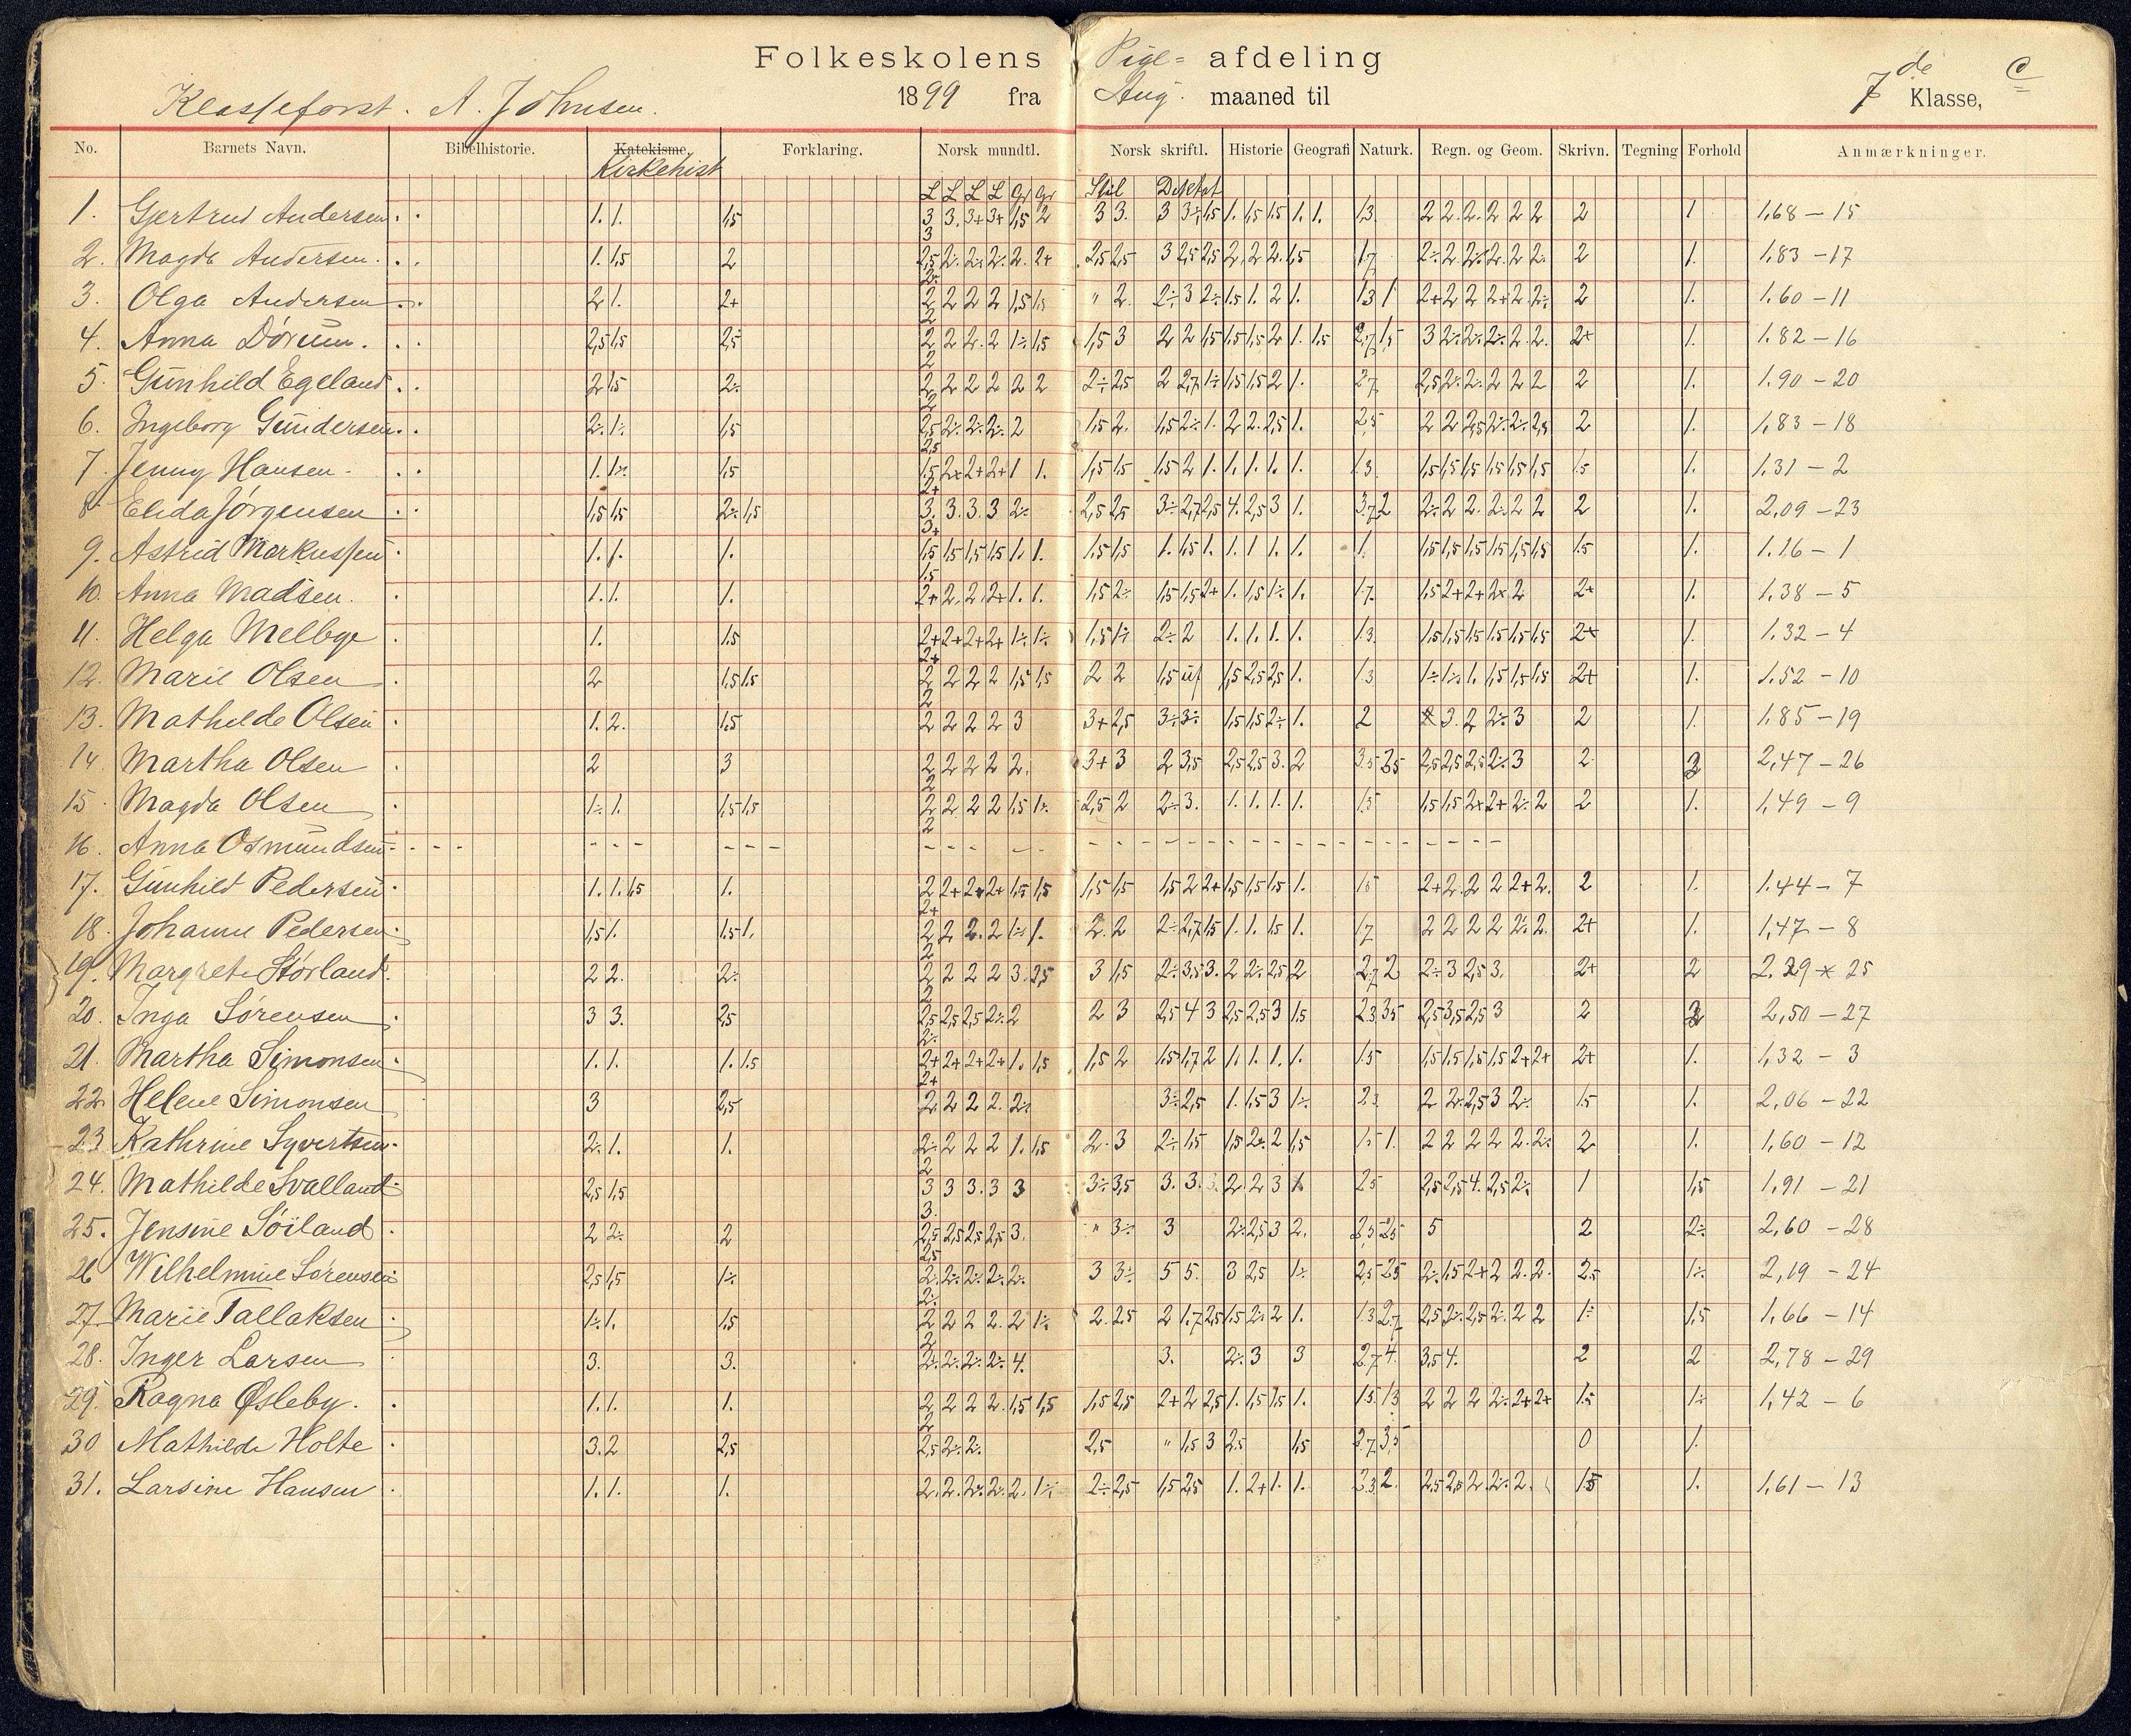 Folkeskolens Pige= afdeling 7de Klasse, C
Klasseforst. A. Johnsen. 1899 fra Aug. maaned til
No. Barnets Navn. Bibelhistorie. Katekisme. Forklaring. Norsk mundtl. Norsk skriftl. Historie Geografi Naturk. Regn. og Geom. Skrivn. Tegning Forhold Anmærkninger.
Kirkehist
L L L L Gr Gr Stil Diktat
1. Gjertrud Andersen 1. 1. 1,5 3 3. 3+ 3+ 1,5 2 3 3. 3 3÷ 1,5 1. 1,5 1,5 1. 1. 1.3. 2 2. 2. 2 2 2 2 1 1,68 – 15
3
2. Magda Andersen. 1. 1,5 2 2,5 2÷ 2÷ 2÷ 2. 2+ 2,5 2,5 3 2,5 2,5 2. 2. 2. 1,5 1.7 2÷ 2. 2÷ 2. 2. 2. 2 1. 1.83 – 17
2÷
3. Olga Andersen 2 1. 2+ 2 2 2 2 1,5 1,5 " 2. 2÷ 3 2÷ 1.5 1. 2 1. 1.3 1 2+ 2 2 2+ 2. 2÷ 2 1. 1.60 – 11
2
4. Anna Dørum. 2,5 1,5 2,5 2 2 2. 2 1÷ 1,5 1,5 3 2 2 1,5 1,5 1,5 2 1. 1.5 2.7 1,5 3 2÷ 2÷ 2÷ 2. 2. 2+ 1. 1.82 – 16
2
5. Gunhild Egeland 2 1,5 2÷ 2 2 2 2 2 2 2÷ 2,5 2 2,7 1÷ 1,5 1,5 2 1. 2.7 2,5 2÷ 2. 2 2 2 2 1. 1.90 – 20
2
6. Ingeborg Gundersen. 2÷ 1÷ 1,5 2,5 2÷ 2÷ 2÷ 2 1,5 2. 1,5 2÷ 1. 2 2. 2,5 1. 2.5 2 2 2,5 2÷ 2÷ 2,5 2 1. 1,83 – 18
2,5
7. Jenny Hansen. 1. 1÷ 1,5 1.5 2+ 2+ 2+ 1 1. 1,5 1,5 1.5 2 1. 1. 1. 1. 1. 1.3. 1,5 1,5 1,5 1,5 1,5 1,5 1.5 1. 1.31 – 2
2+
8. Elida Jørgensen 1,5 1,5 2÷ 1,5 3. 3. 3. 3 2÷ 2,5 2,5 3÷ 2,7 2,5 4. 2,5 3 1. 3.7 2 2÷ 2 2. 2÷ 2 2 2 1. 2,09 – 23
3+
9. Astrid Markussen 1. 1. 1. 1,5 1,5 1,5 1,5 1. 1. 1.5 1,5 1. 1.5 1. 1. 1 1. 1. 1. 1,5 1,5 1,5 1,5 1,5 1,5 1.5 1. 1.16 – 1
1.5
10. Anna Madsen. 1. 1. 1. 2+ 2. 2. 2+ 1. 1. 1,5 2÷ 1,5 1,5 2+ 1. 1,5 1÷ 1. 1.7. 1.5 2+ 2+ 2+ 2 2+ 1. 1.38 – 5
11. Helga Melbye 1. 1.5 2+ 2+ 2+ 2+ 1÷ 1÷ 1,5 1÷ 2÷ 2 1. 1. 1. 1. 1.3. 1,5 1,5 1,5 1,5 1,5 1,5 2+ 1. 1.32 – 4
2+
12. Marie Olsen 2 1,5 1,5 2 2 2 2 1,5 1,5 2 2 1,5 uf 1,5 2,5 2,5 1. 1.3 1÷ 1÷ 1. 1,5 1,5 1,5 2+ 1. 1.52 – 10
2
13. Mathilde Olsen 1. 2. 1.5 2 2 2 2 3 3+ 2,5 3÷ 3÷ 1,5 1,5 2÷ 1. 2 3. 2 2÷ 3 2 1. 1.85 – 19
14. Martha Olsen 2 3 2 2 2 2 2. 3+ 3 2 3,5 2,5 2,5 3. 2 3.5 3,5 2,5 2,5 2,5 2÷ 3 2 2,47 – 26
2
15. Magda Olsen 1÷ 1. 1,5 1,5 2 2 2 2 1,5 1÷ 2,5 2 2÷ 3. 1. 1. 1. 1. 1.5 1,5 1,5 2+ 2+ 2÷ 2 2 1. 1,49 – 9
2
16. Anna Osmundsen - - - - - - - - - - - - - - - - - - - - - - - - - - -
17. Gunhild Pedersen 1. 1. 1,5 1. 2 2+ 2+ 2+ 1,5 1,5 1,5 1,5 1,5 2 2+ 1,5 1,5 1,5 1. 1.5 2+ 2. 2 2 2+ 2. 2 1. 1.44 – 7
2+
18. Johanne Pedersen 1,5 1. 1.5 1. 2 2 2. 2 1÷ 1. 2. 2 2÷ 2,7 1,5 1. 1. 1,5 1. 1.7 2 2 2 2 2÷ 2. 2+ 1. 1,47 – 8
2
19. Margrete Størland. 2 2. 2÷ 2 2 2 2 3. 2,5 3 1,5 2÷ 3,5 3. 2 2÷ 2,5 2 2.7 2 2÷ 3 2,5 3. 2+ 2 2.29 × 25
2
20. Inga Sørensen 3 3. 2,5 2,5 2,5 2,5 2÷ 2 2 3 2,5 4 3 2,5 2,5 3 1,5 2.3 3.5 2,5 3,5 2,5 3 2 2,50 – 27
2÷
21. Martha Simonsen 1. 1. 1. 1.5 2+ 2+ 2+ 2+ 1. 1,5 1,5 2 1.5 1,7 2 1. 1. 1. 1. 1.5 1,5 1,5 1,5 1,5 2+ 2+ 2+ 1. 1,32 – 3
2+
22. Helene Simonsen 3 2,5 2 2 2 2. 2÷ 3÷ 2,5 1. 1.5 3 1÷ 2.3. 2 2÷ 2,5 3 2÷ 1.5 1. 2,06 – 22
23 Kathrine Syvertsen 2÷ 1. 1. 2÷ 2 2 2 1. 1.5 2. 3 2÷ 1.5 1,5 2÷ 2 1,5 1.5 1. 2 2 2 2 2. 2÷ 2 1. 1,60 – 12
2
24. Mathilde Svalland 2,5 1,5 3 3 3. 3 3 3÷ 3,5 3. 3. 2. 2 3 2.5 2,5 2,5 4. 2,5 2÷ 1 1,5 1,91 – 21
3.
25. Jensine Søiland 2 2÷ 2 2,5 2,5 2,5 2,5 3. " 3÷ 3 2÷ 2,5 3 2. 2.5 2.5 5 2 2÷ 2,60 – 28
2,5
26 Wilhelmine Sørensen 2,5 1,5 1÷ 2÷ 2÷ 2÷ 2÷ 2÷ 3 3÷ 5 5. 3 2,5 1÷ 2,5 2,5 2÷ 1,5 2+ 2 2. 2. 2.5 1÷ 2,19 – 24
2÷
27 Marie Tallaksen 1÷ 1. 1.5 2 2 2 2. 2 1÷ 2. 2.5 2 1.7 2,5 1.5 2÷ 2 1. 1.3 2.7 2,5 2÷ 2,5 2÷ 2 2 1÷ 1,5 1,66 – 14
2
28. Inger Larsen 3. 3. 2÷ 2÷ 2÷ 2÷ 4. 3. 2÷ 3 3 2.7 4. 3,5 4. 2 2 2,78 – 29
29. Ragna Øsleby. 1. 1. 1. 2 2 2 2. 1,5 1,5 1,5 2,5 2+ 2 2,5 1. 1,5 1,5 1. 1.5 1.3 2 2 2 2÷ 2+ 2+ 1.5 1÷ 1,42 – 6
2
30 Mathilde Holte 3. 2 2,5 2,5 2÷ 2÷ 2,5 " 1,5 3 2,5 1,5 2.7 3,5 0 1.
31. Larsine Hansen 1. 1. 1. 2. 2. 2÷ 2÷ 2. 1÷ 2÷ 2,5 1,5 2,5 1. 2+ 1. 1. 2.3 2. 2,5 2,5 2 2÷ 2. 1.5 1. 1,61 – 13